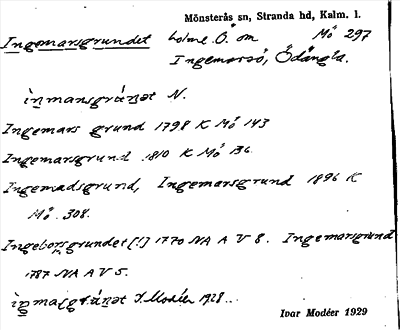 Mönsterås sn, Stranda hd, Kalm. l.
Ingemarsgrundet holme Ö. om Mö 297
Ingemarsö, Ödängla.
N.
Ingemars grund 1798 K Mö 143
Ingemarsgrund 1810 K Mö 136
Ingemadsgrund, Ingemarsgrund 1896 K
Mö 308.
Ingeborsgrundet [!] 1770 NA A V 8. Ingemarsgrund
1787 NA A V 5.
I. Modéer 1928.
Ivar Modéer 1929